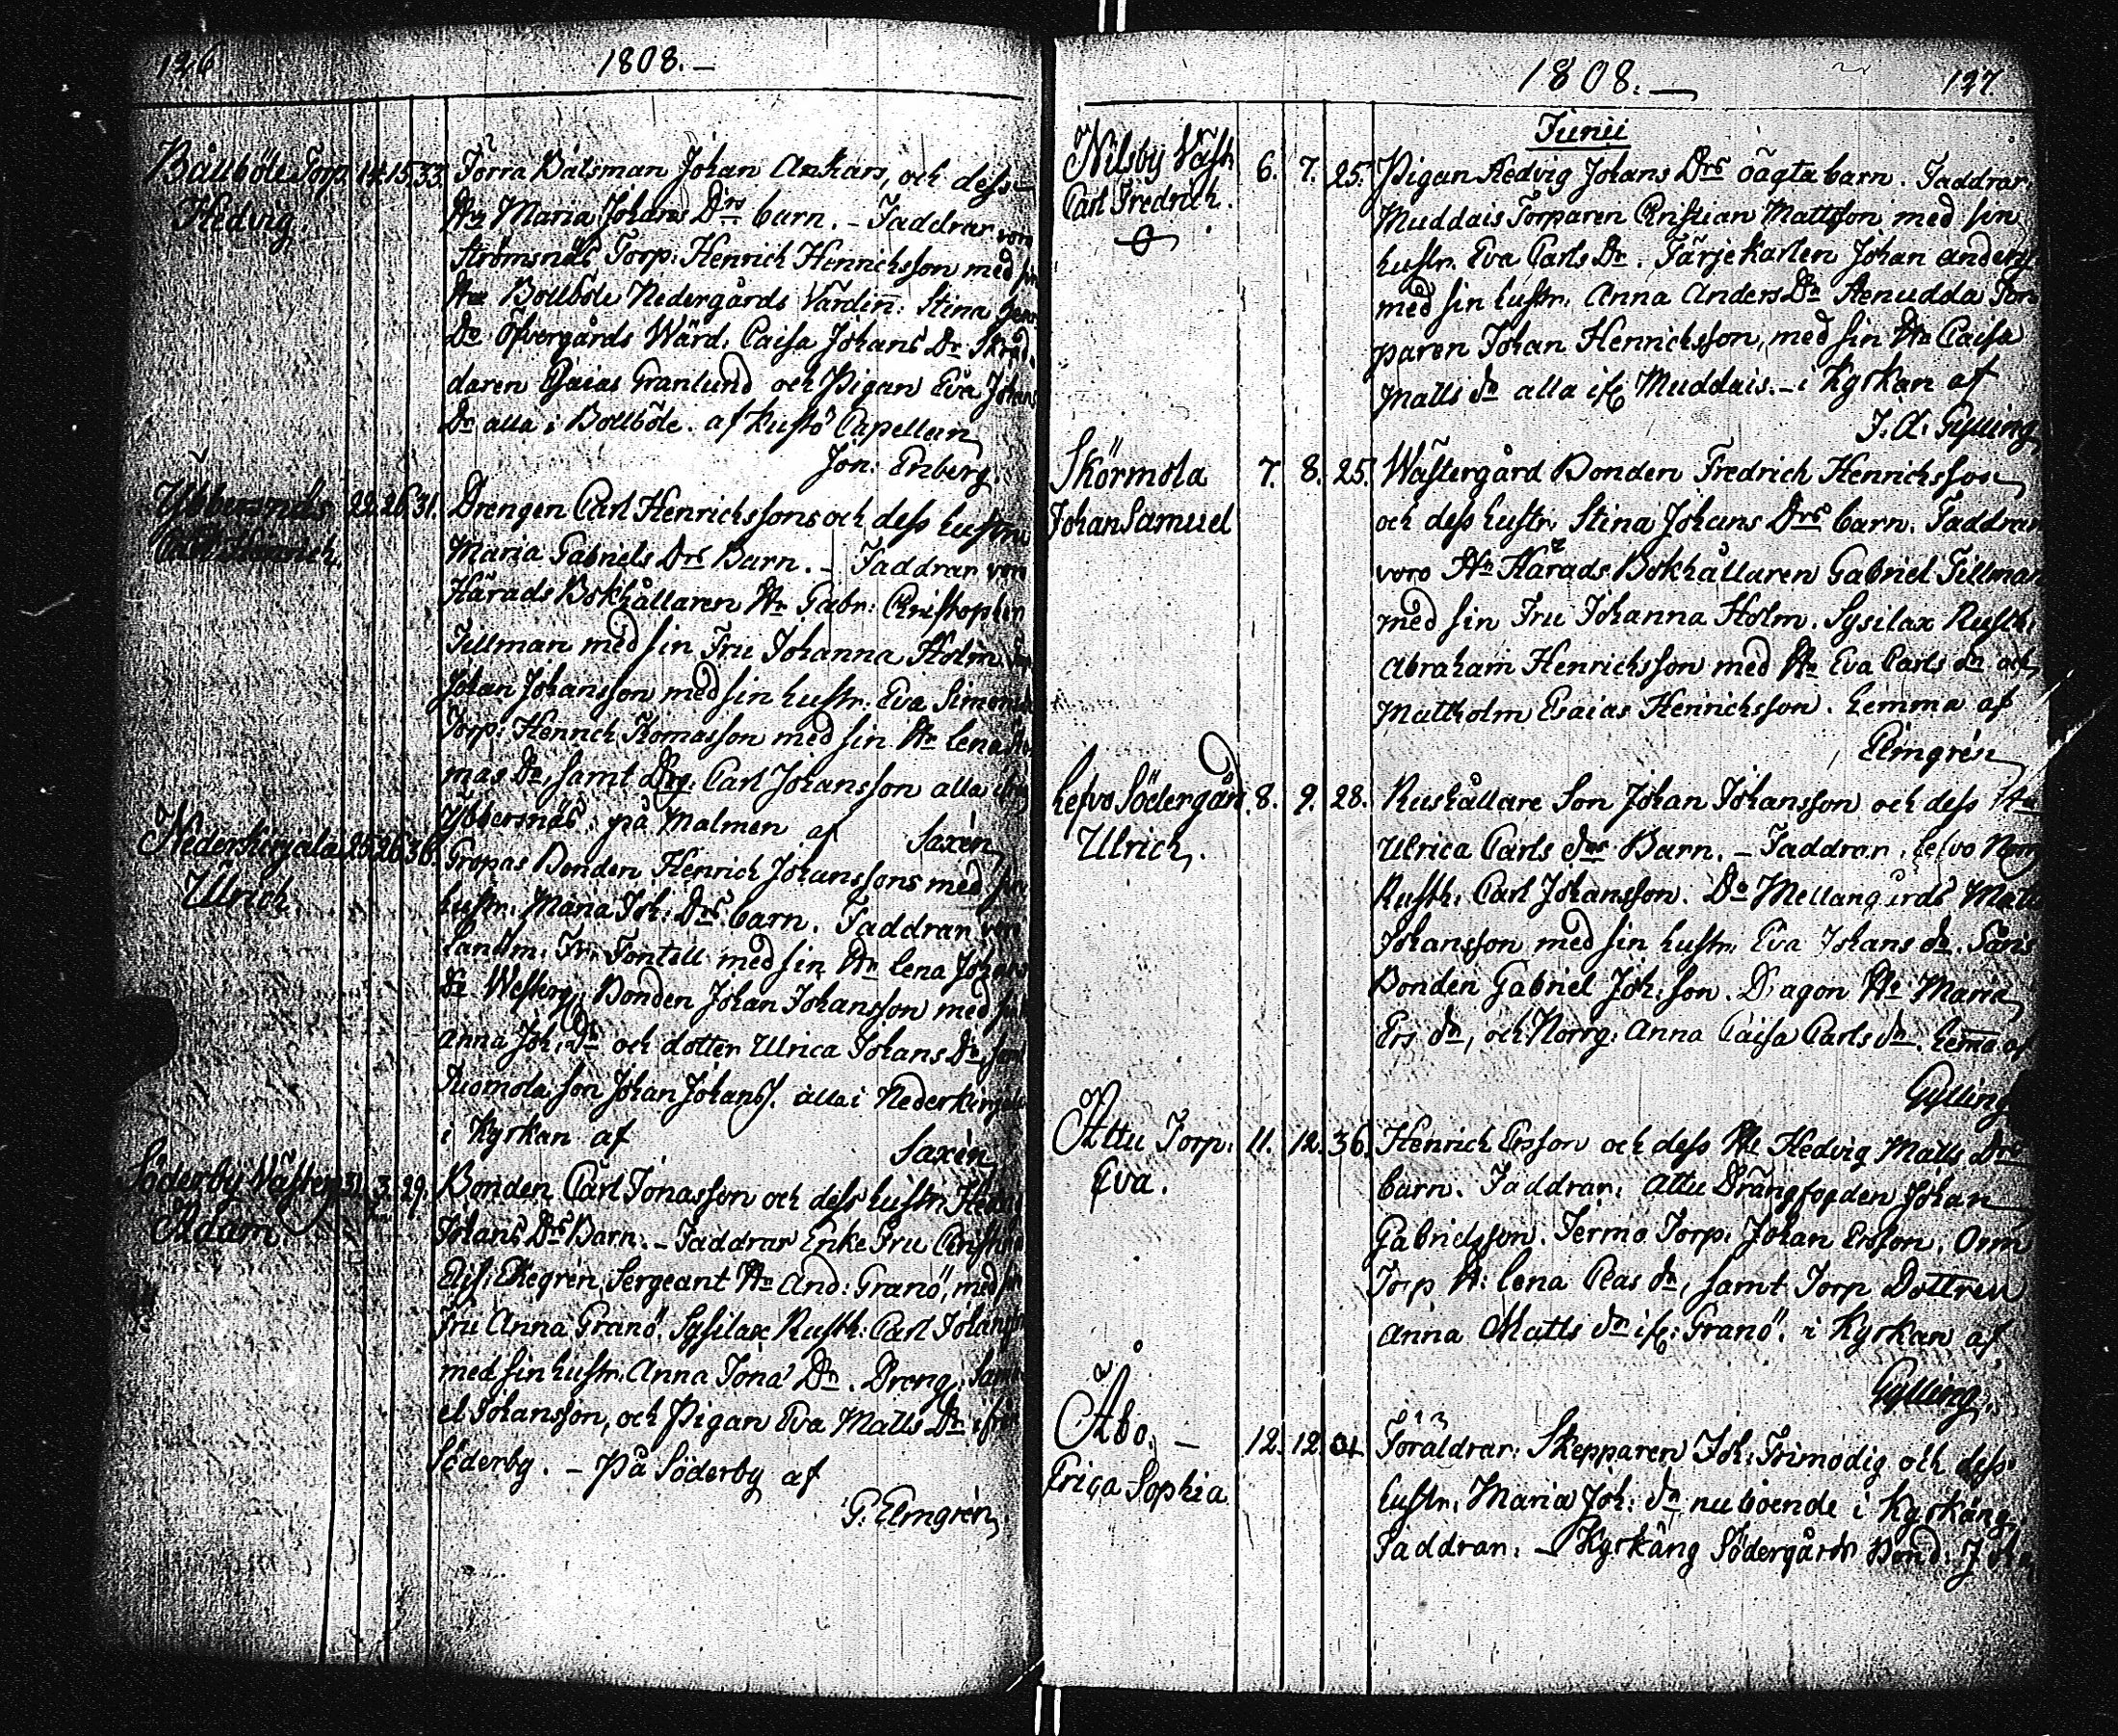 126
1808. —
Bållböle Torp 14. 15. 33. Förra Båtsman Johan Ankars, och dess
Hedvig. Hu Maria Johans Drs barn. – Faddrar voro
Strömsnäs Torp: Henrich Henrichsson med sin
Hu Bollböle Nedergårds Värdin: Stina
Do Öfvergårds Wärd. Caisa Johans Dr Skräd-
daren Esaias Granlund och Pigan Eva Johans
Dr alla i Bollböle. af Kustö Capellan
Jon: Enberg.
Ybbersnäs 22. 26. 31. Drengen Carl Henrichssons och dess hustru
Carl Henrich. Maria Gabriels Drs Barn. – Faddrar voro
Härads Bokhållaren Hr Gabr: Christopher
Tillman med sin Fru Johanna Holm
Johan Johansson med sin hustr: Eva Simons
Torp: Henrich Thomasson med sin Hu Lena Tho-
mas Dr, samt Drg: Carl Johansson alla
Ybbersnäs, på Malmen af Saxén
Nederkirjala 25. 26. 36. Gropas Bonden Henrich Johanssons med sin
Ulrich. hustr: Maria Joh: Drs barn. Faddrar voro
Landtm: Fr: Fontell med sin Hu Lena Johans
Dr Westerg: Bonden Johan Johansson med sin
Anna Joh: Dr och dotter Ulrica Johans Dr, samt
Tuomola son Johan Johanss. alla i Nederkirjala
i Kyrkan af Saxén
Söderby Väster 31. 3. 29. Bonden Carl Jonasson och dess hustru
Adam. Johans Drs Barn. – Faddrar Enke Fru Christina
Elis: Ekegrén, Sergeant Hr And: Granö, med sin
Fru Anna Granö. Sysilax Rusth: Carl Johansson
med sin hustr. Anna Jona Dr. Dreng: Samu-
el Johansson, och Pigan Eva Matts Dr ifrån
Söderby. – på Söderby af
G. Elmgrén
1808. —
127.
Junii
Nilsby Väst: 6. 7. 25. Pigan Hedvig Johans Drs oägta barn. Faddrar:
Carl Fredrich. Muddais Torparen Christian Mattsson med sin
hustr. Eva Carls Dr. Färjekarlen Johan Anders
med sin hustr: Anna Anders Dr Stenudda Tor-
paren Johan Henrichsson, med sin Hu Caisa
Matts dr alla ifr Muddais. – i Kyrkan af
J. A. Gylling
Skörmola 7. 8. 25. Wästergård Bonden Fredrich Henrichsson
Johan Samuel och dess hustr, Stina Johans Drs barn. Faddrar
voro Hr Härads Bokhållaren Gabriel Tillman
med sin Fru Johanna Holm. Sysilax Rusth:
Abraham Henrichsson med Hu Eva Carls dr och
Mattholm Esaias Henrichsson. hemma af
Elmgrén
Lefvo Södergård. 8. 9. 28. Rushållare Son Johan Johansson och dess Hu
Ulrich. Ulrica Carls drs Barn. – Faddrar, Lefvo Norrg
Rusth: Carl Johansson. Do Mellangårds Matts
Johansson med sin hustr: Eva Johans dr.
Bonden Gabriel Joh: son. Dragon Hu Maria
Ers dr, och Norrg: Anna Caisa Carls dr. hema af
Gylling
Attu Torp: 11. 12. 36. Henrich Ersson och dess Hu Hedvig Matts Drs
Eva. barn. Faddrar: Attu Drängfogden Johan
Gabrielsson. Jermo Torp: Johan Ersson. Orm
Torp H: Lena Clas dr, samt Torp Dottren
Anna Matts dr ifr: Granö. i Kyrkan af
Gylling.
Åbo. – 12. 12. Föräldrar: Skepparen Joh: Frimodig och dess
Erica Sophia hustr: Maria Joh: dr nu boende i Kyrkäng.
Faddrar: – Kyrkäng Södergårds Bond: